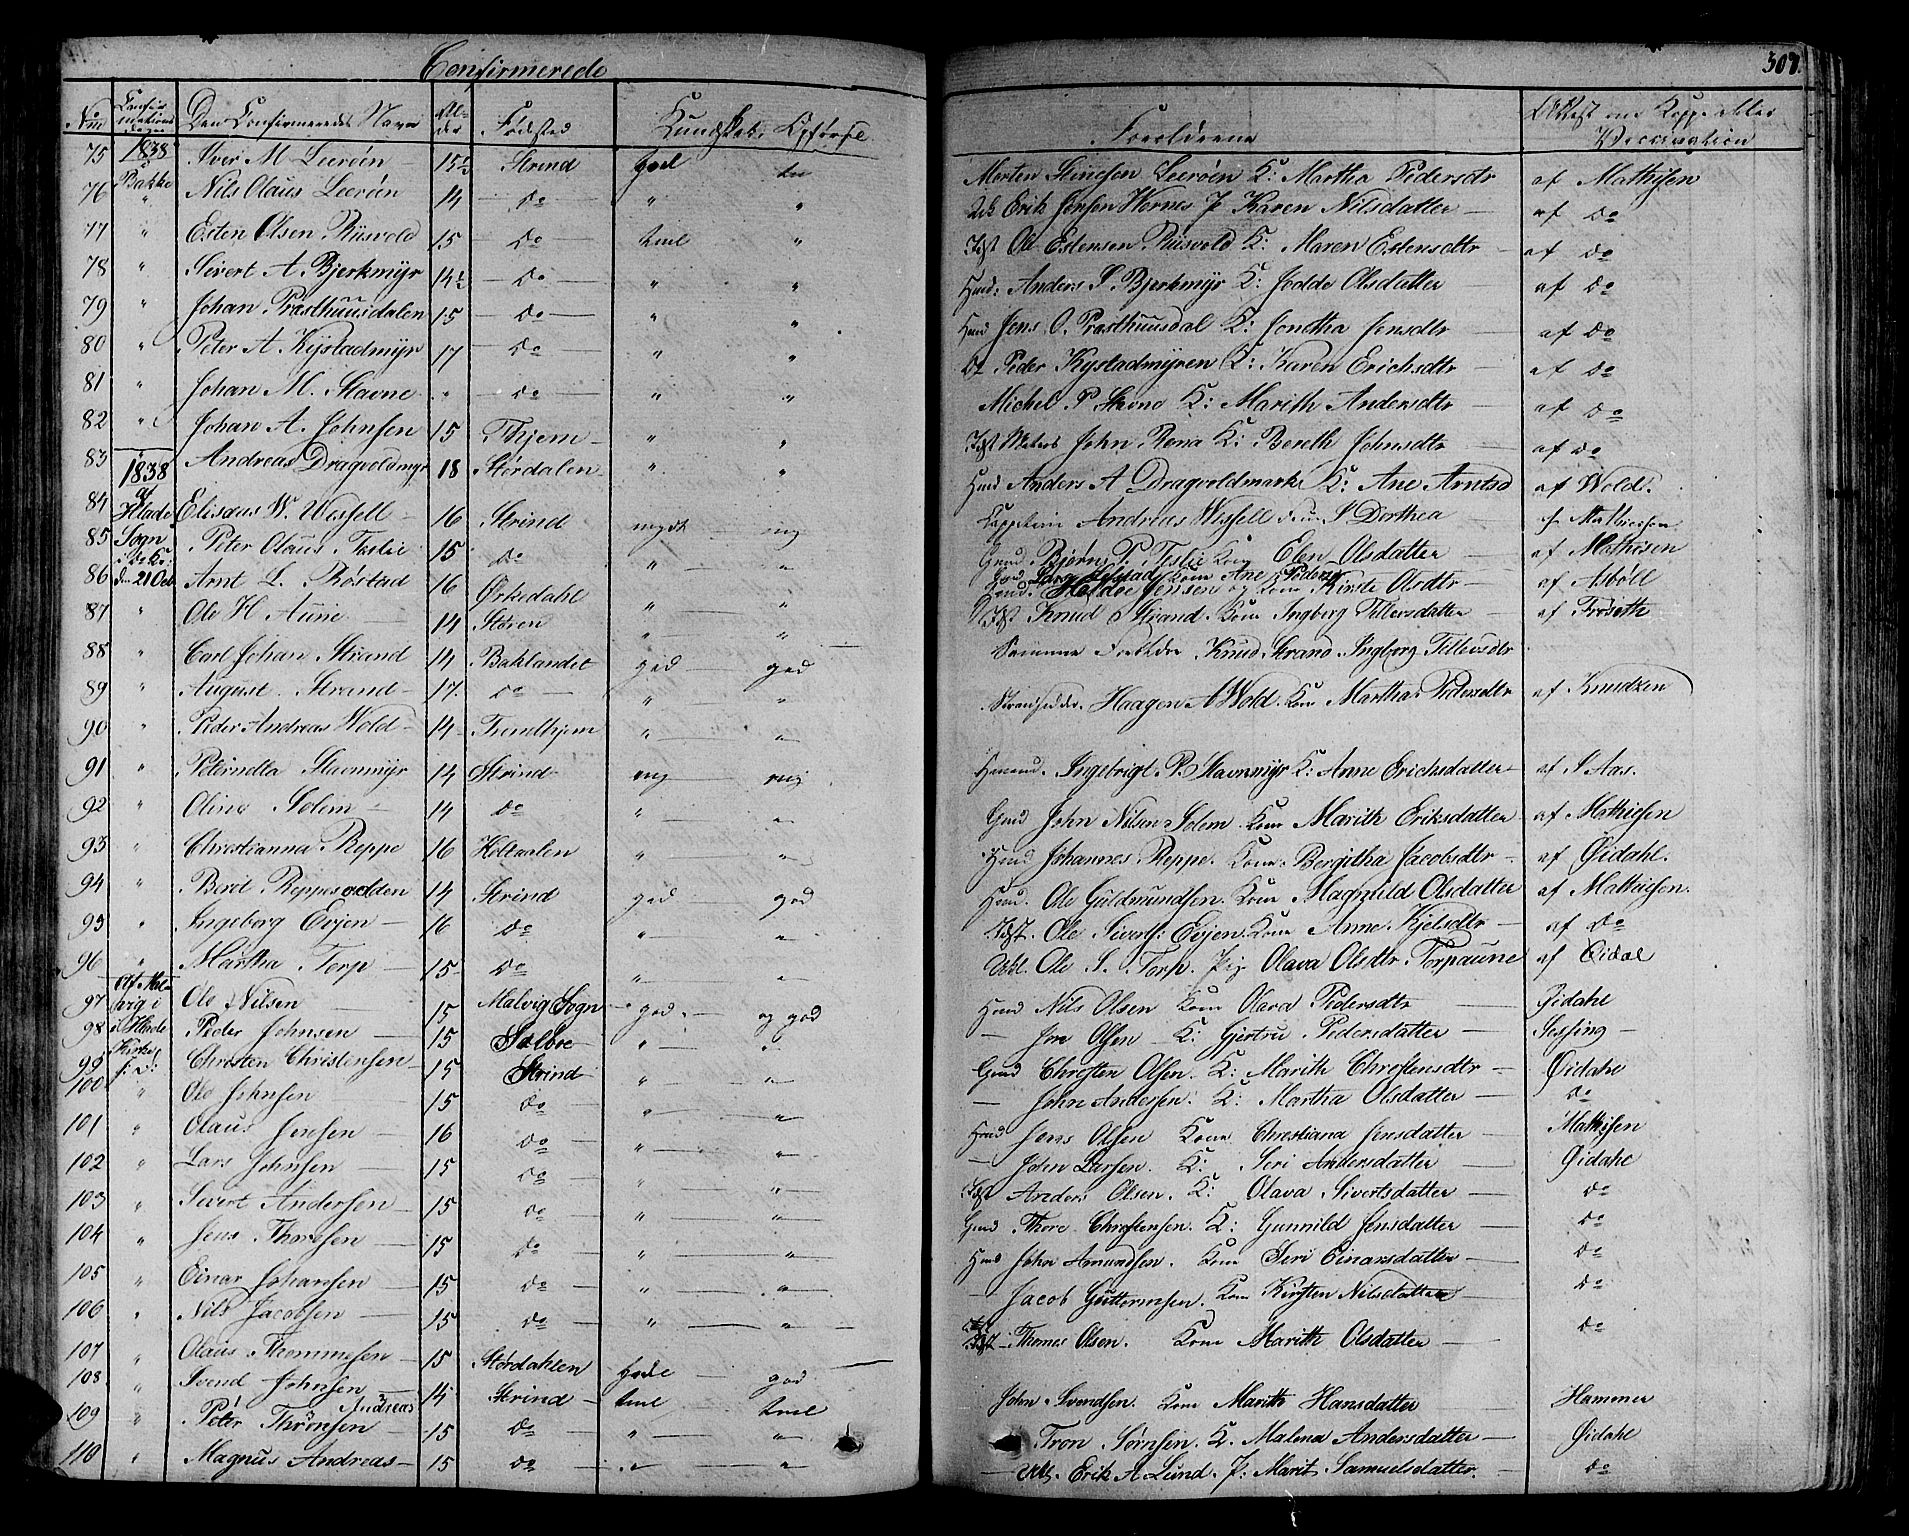 Confirmerede
307.
Num Confirmations dagen Den Confirmeredes Navn Alder Fødsted Kundskab Opførsel Forældrene Attest om Kopper eller Vaccination
75 1838 Iver M Leerøn 15½ Strind Morten Leerøn K: Martha Pedersdtr af Mathisen
76 Bakke Nils Olaus Leerøn 14 do " " Erik Jensen Wornes P Karen Nilsdatter af do
77 " Esten Olsen Riisvold 15 do tmel " Ole Estensen Riisvold K: Maren Estensdtr af do
78 " Sivert A. Bjerkmyr 14½ do " " Huusmd: Anders S. Bjerkmyr K: Olsdatter af do
79 " Johan Præsthuusdalen 15 do " " Huusmd Jens O. Præsthuusdal K: Jonetha Jensdtr af do
80 " Peter A. Kystadmyr 17 do " " do Peder Kystadmyren K: Karen Erichsdtr af do
81 " Johan M. Stavne " do " " Michel P K: Marith Andersdtr af do
82 " Johan A. Johnsen 15 Thjem " " John Rena K: Bereth Johnsdtr af do
83 1838 Andreas Dragvoldmyr 18 Størdalen " " Anders A Dragvoldmark K: Ane Arntsd af Wold.
84 af Hlade Eliseus W. Wisfell 16 Strind meget mg Andreas Wisfell S Dorthea af Mathiesen
85 Sogn Peter Olaus Teslie 15 do " " Gmd Bjørn P. Teslie Kone Elen Olsdatter af Mathisen
86 den 21 Oct Arnt L. Røstad 16 Ørkedahl Kone Ane Peders
Jensen og Kone Kirste Olsdtr af Asbøll
87 " Ole H Aune 14 Støren " " Knud Strand. Kone Ingborg Tellevsdatter af Froseth
88 " Carl Johan Strand 14 Baklandet god god Samme Forældre Knud Strand. Ingborg Tellevsdtr
89 " August. Strand 17. do " "
90 " Peder Andreas Wold 14 Trundhjem " " Haagen A Wold. Kone Martha Pedersdtr af Knudzen
91 " Peternelta Stavnmyr 14 Strind mg mg Ingebrigt. P. Stavnmyr K: Anne Erichsdatter af S Aas.
92 " Oline Solem 14 do " " Gmd John Nilsen Solem. Kone Marith Eriksdatter af Mathiesen
93 " Christianna Reppe 16 Holtaalen " " Hmd Johannes Reppe. Kone. Bergitha Jacobsdtr af Øidahl.
94 " Berit Reppesvedden 14 Strind god god Hmd. Ole Guldmundsen. Kone Magnild Olsdatter af Mathiesen.
95 " Ingeborg Evjen 16 do " " Ole Sivers: Evjen. Kone Anne Kjelsdtr af do
96 " Martha Torp 15 do " " Ole S. Torp. Pig Olava Olsdtr Torpaune af Øidal
97 Af Malvig i Ole Nilsen 15 Malvig Sogn god og god Hmd Nils Olsen Kone Olava Pedersdtr Øidahl
98 i Hlade Peder Johnsen 15 Selboe " " Olsen K: Gjertru Pedersdatter Sessing
99 Kirke Christen Christensen 15 Strind " " Gmd Christen Olsen. K: Marith Christensdtr Øidahl
100 " Ole Johnsen 15 do " " John Andersen. K: Martha Olsdatter do
101 " Olaus Jensen 16 do " " Hmd Jens Olsen Kone Christiana Jensdatter Mathisen
102 " Lars Johnsen 15 do " " John Larsen. K: Seri Andersdatter Øidahl
103 " Sivert Andersen 15 do " " Anders Olsen. K: Olava Sivertsdatter do
104 " Jens Thoresen 15 do " " Gmd Thore Christensen. K: Gunnild Jensdatter do
105 " Einar Johansen 15 do " " Hmd John Amundsen. Kone Seri Einarsdatter do
106 " Nils Jacobsen 15 do " " Jacob Guttormsen. Kone Kirsten Nilsdatter do
107 Olaus Thommesen 15 Størdahlen god Thomes Olsen. Kone Marith Olsdatter do
108 " Svend Johnsen 14 Strind tmel tmel John Svendsen. Kone Marith Hansdatter Hammer
109 " Peter Thrønsen Andreas 15 do " " Tron Sørnsen. K. Malena Andersdatter Øidahl
110 " Magnus Andreas 15 do " " Erik A Lund. P: Marit Samuelsdatter. do